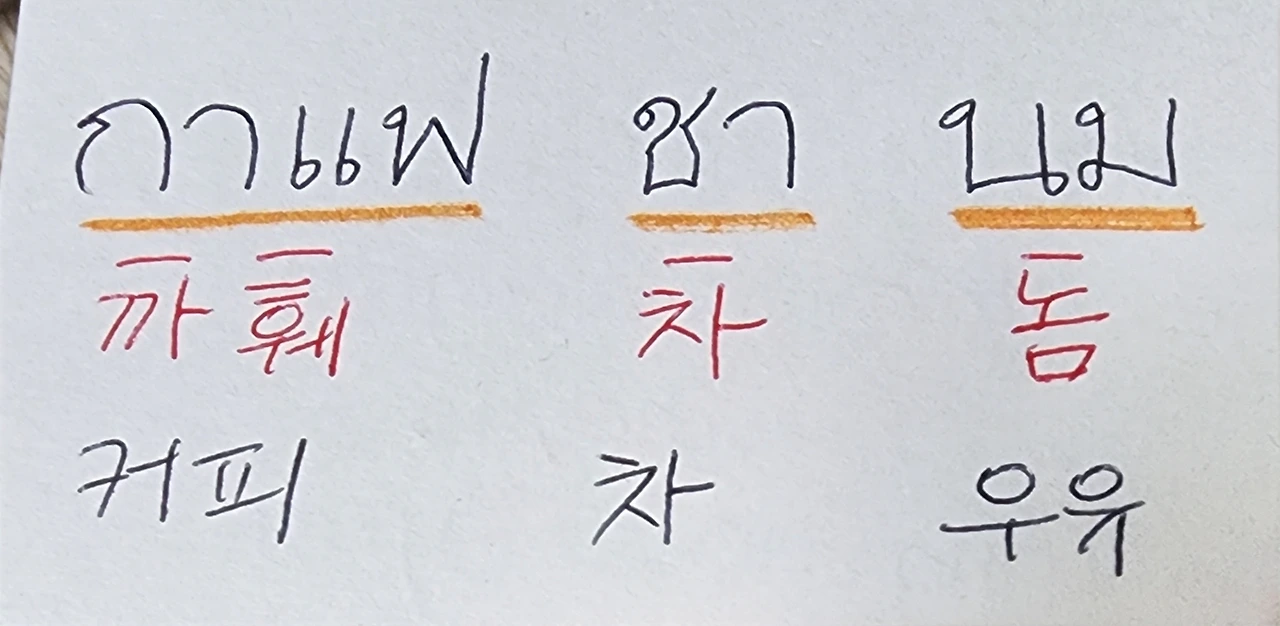 กาแฟ ชา นม
까훼 차 놈
커피 차 우유